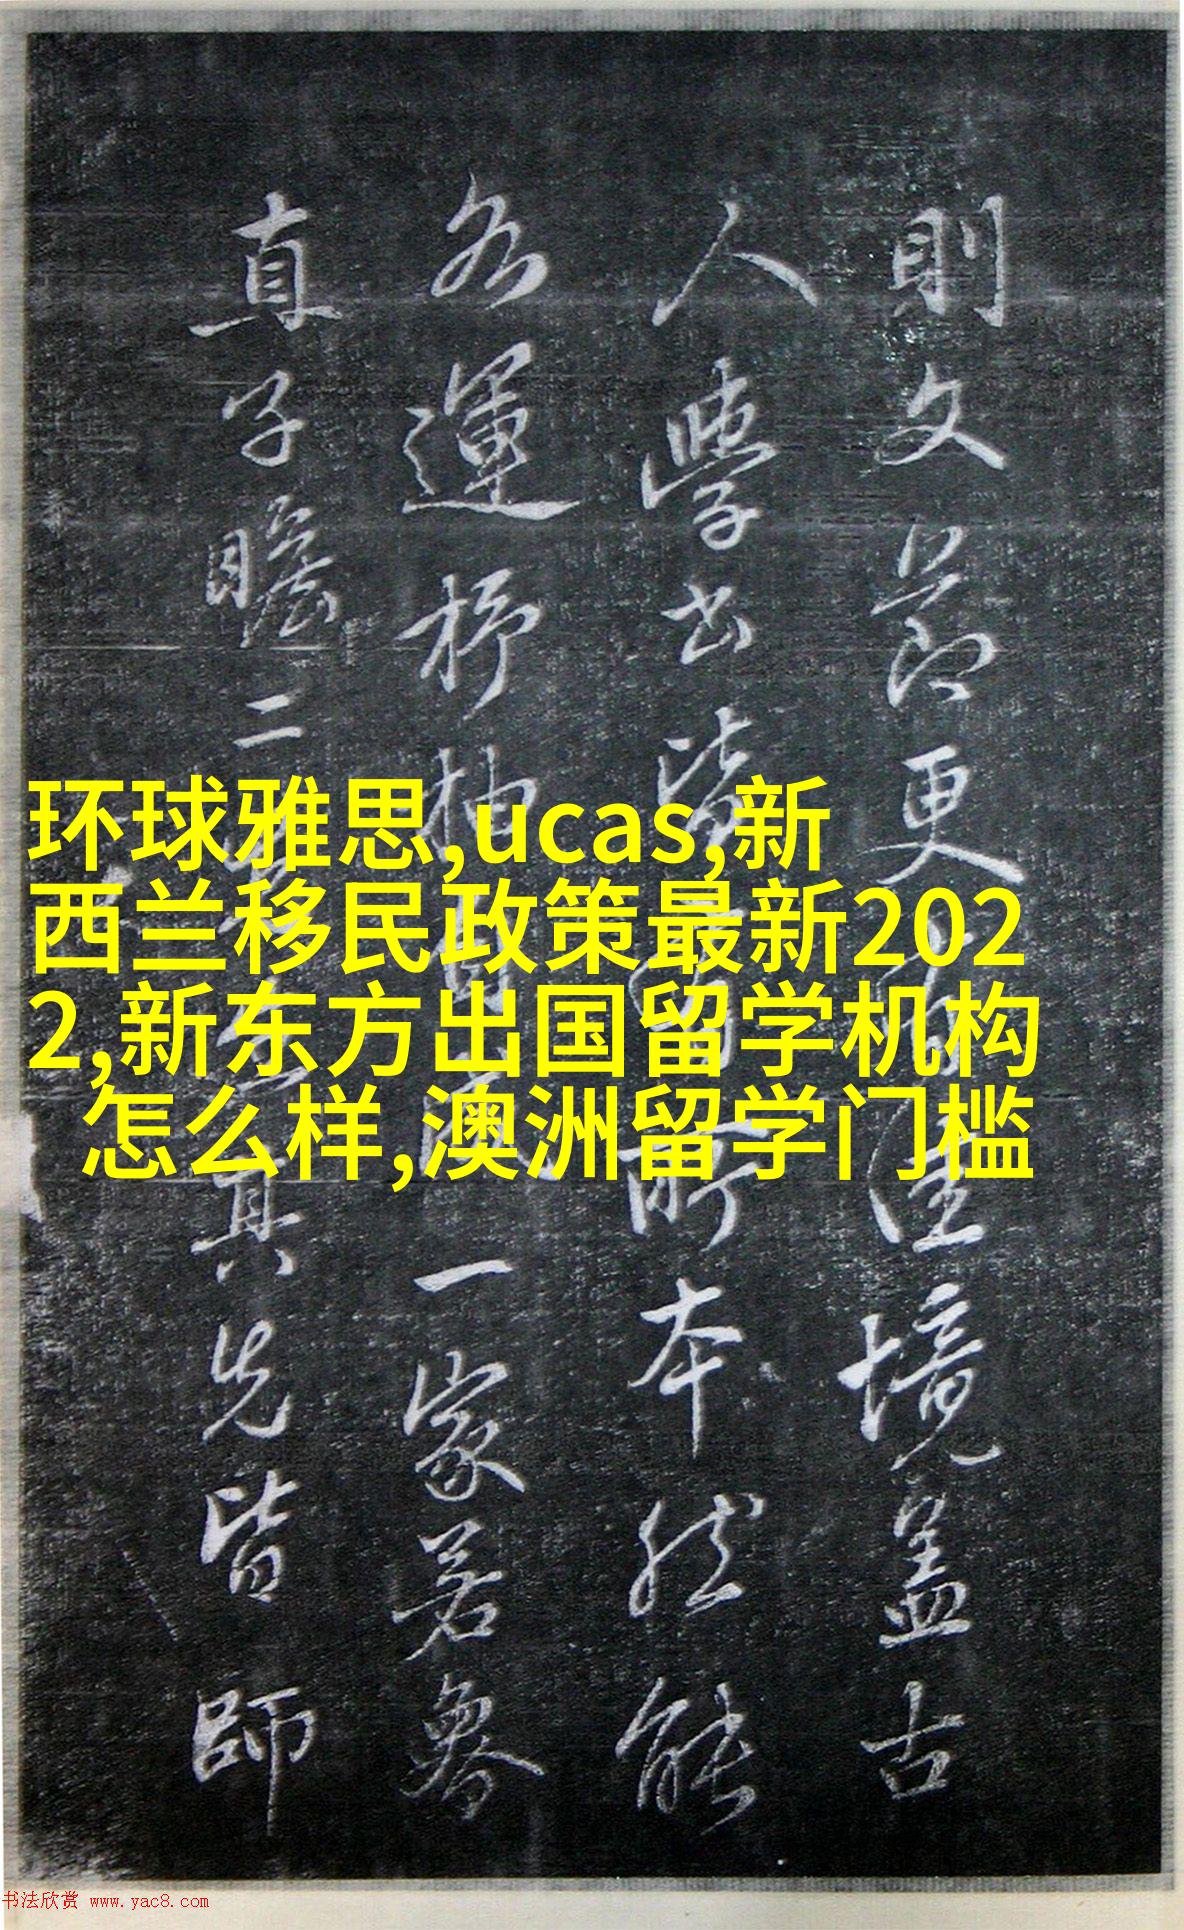 环球雅思,ucas,新
西兰移民政策最新202
2,新东方出国留学机构
怎么样,澳洲留学门槛
則文節更佳境蓋古
人學書皆有所本然能
各運杼柚自一家若魯
直子瞻二其先皆師
书法欣赏 www.yac8.com